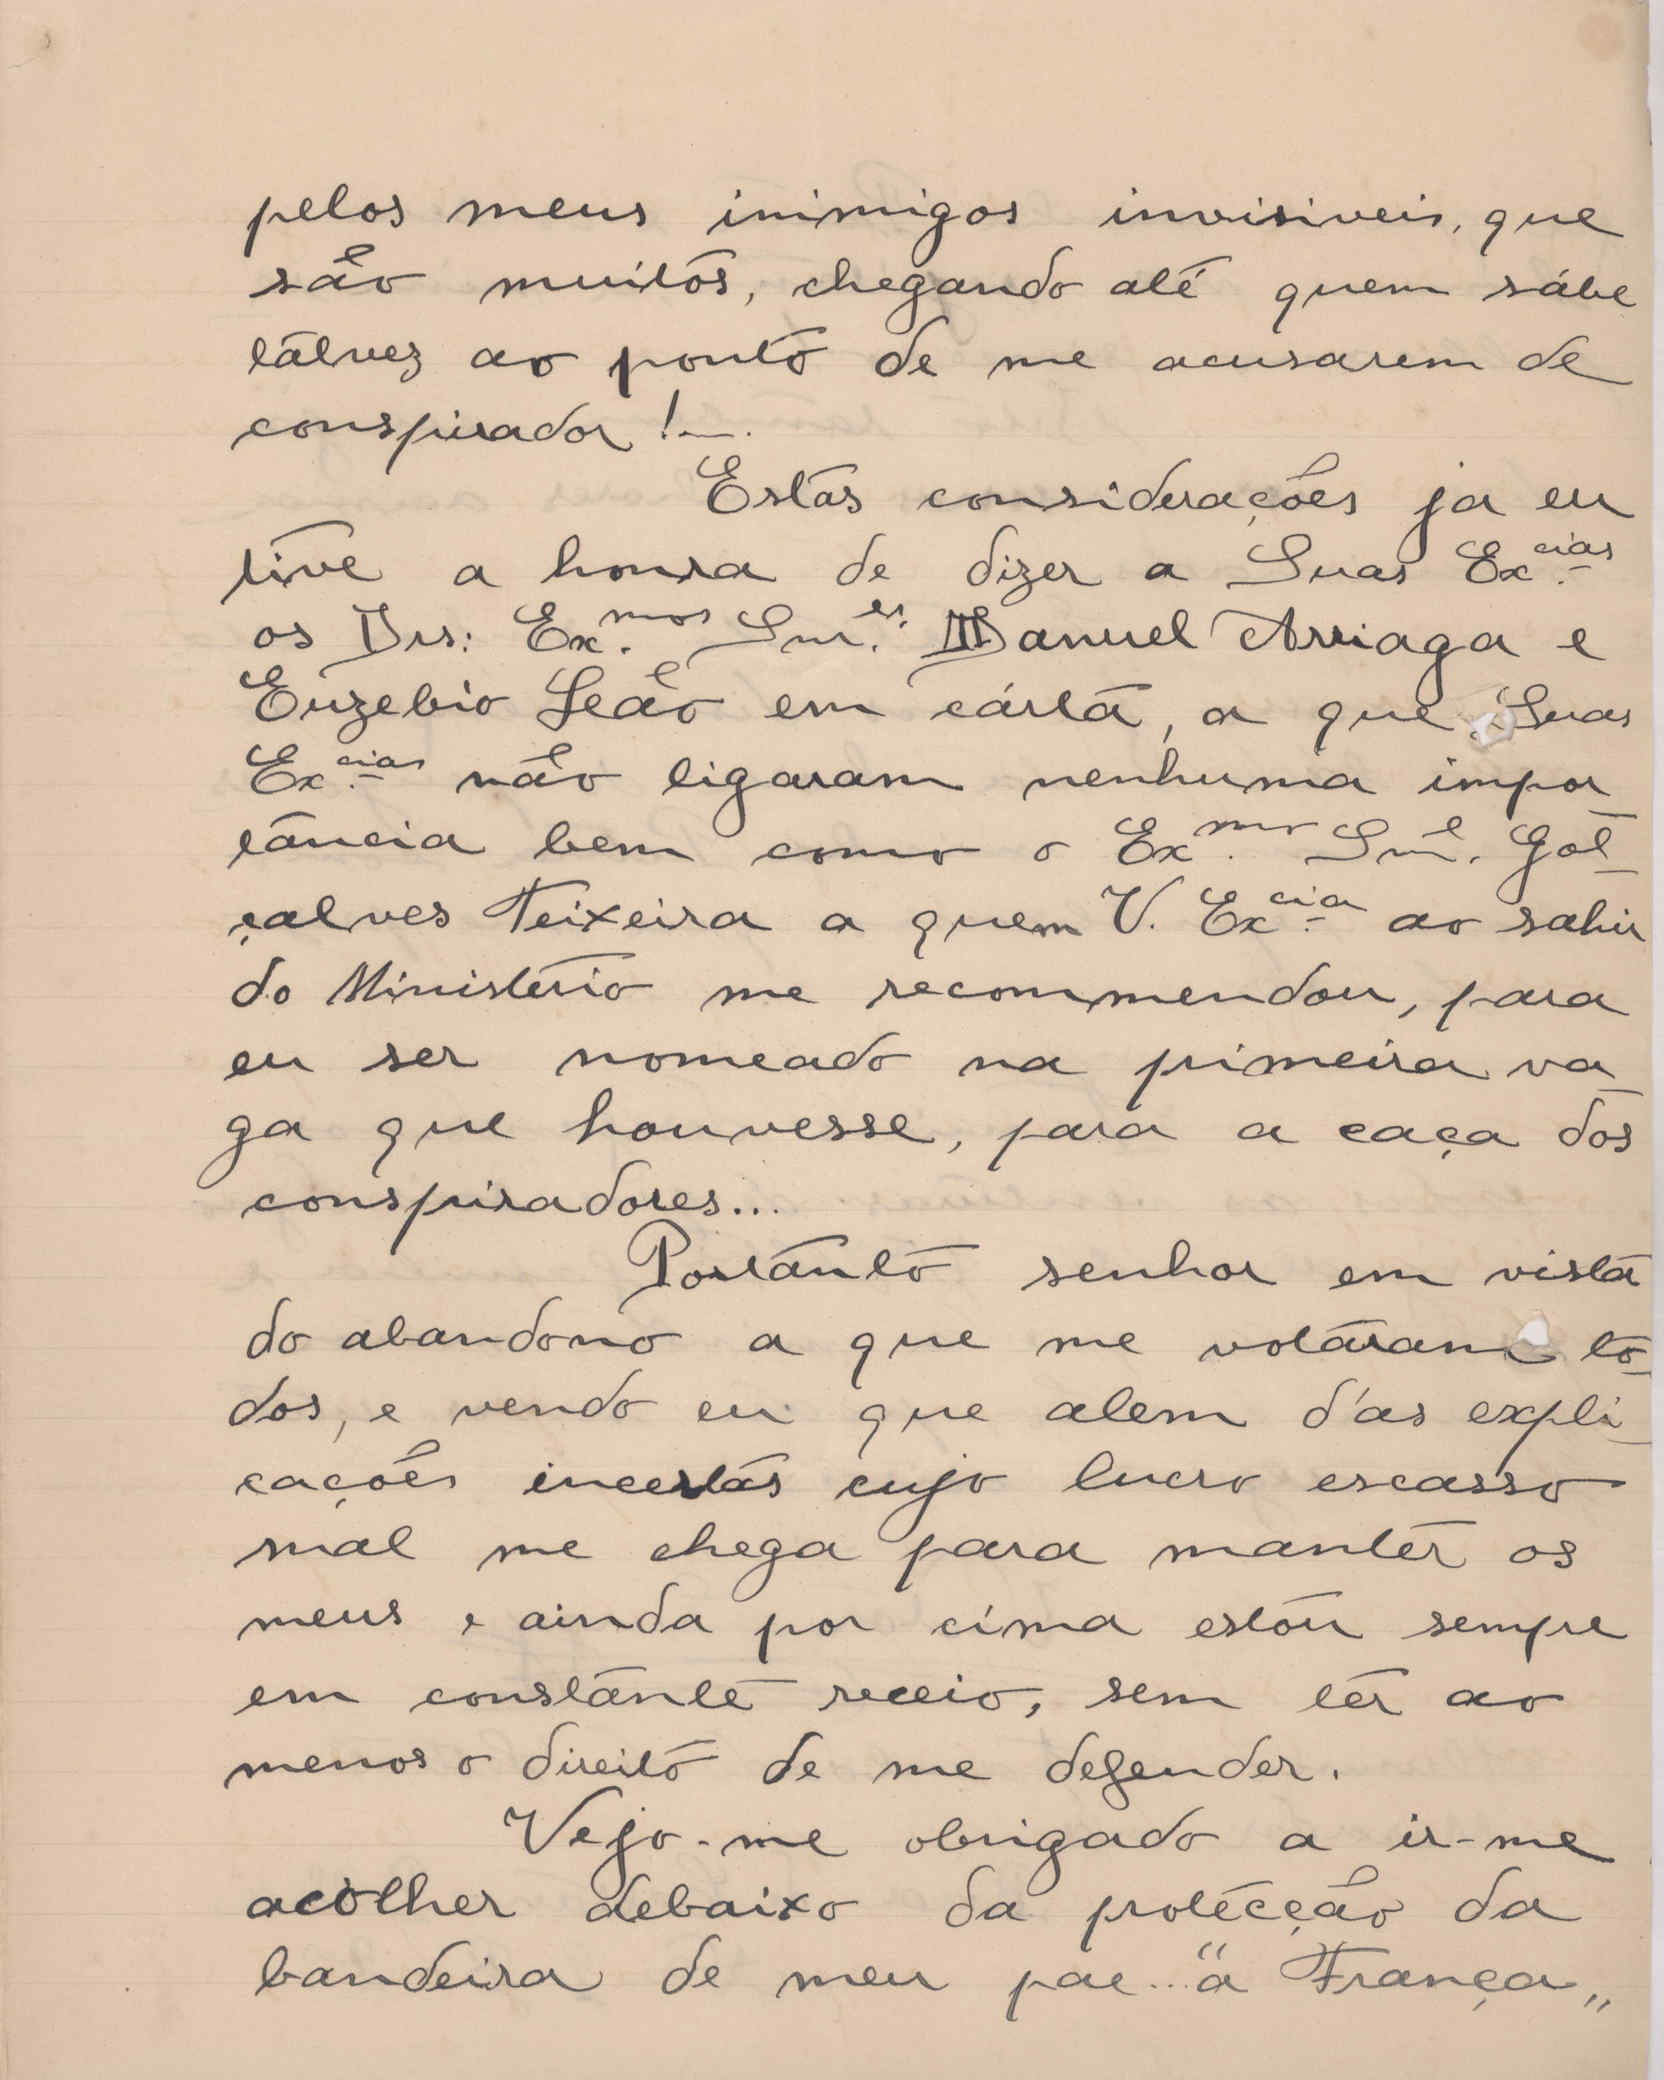 pelos meus inimigos invisiveis, que
são muitos, chegando até quem sábe
tálvez ao ponto de me acusarem de
conspirador!...
Estas considerações ja eu
tive a honra de dizer a Suas Ex.cias
os Drs: Ex.mos Snr.es Manuel Arriaga e
Euzebio Leão em cárta, a que Suas
Ex.cias não ligaram nenhuma impor_
tância bem como o Ex.mo Snr. Gol_
çalves Teixeira a quem V. Ex.cia ao sahir
do Ministério me recommendou, para
eu ser nomeado na primeira va_
ga que houvesse, para a caça dos
conspiradores...
Portanto senhor em vista
do abandono a que me votáram to_
dos, e vendo eu que alem d'as expli_
cações incertas cujo lucro escasso
mal me chega para mantêr os
meus e ainda por cima estou sempre
em constante receio, sem têr ao
menos o direito de me defender.
Vejo-me obrigado a ir-me
acolher debaixo da protécção da
bandeira de meu pae... "a França„